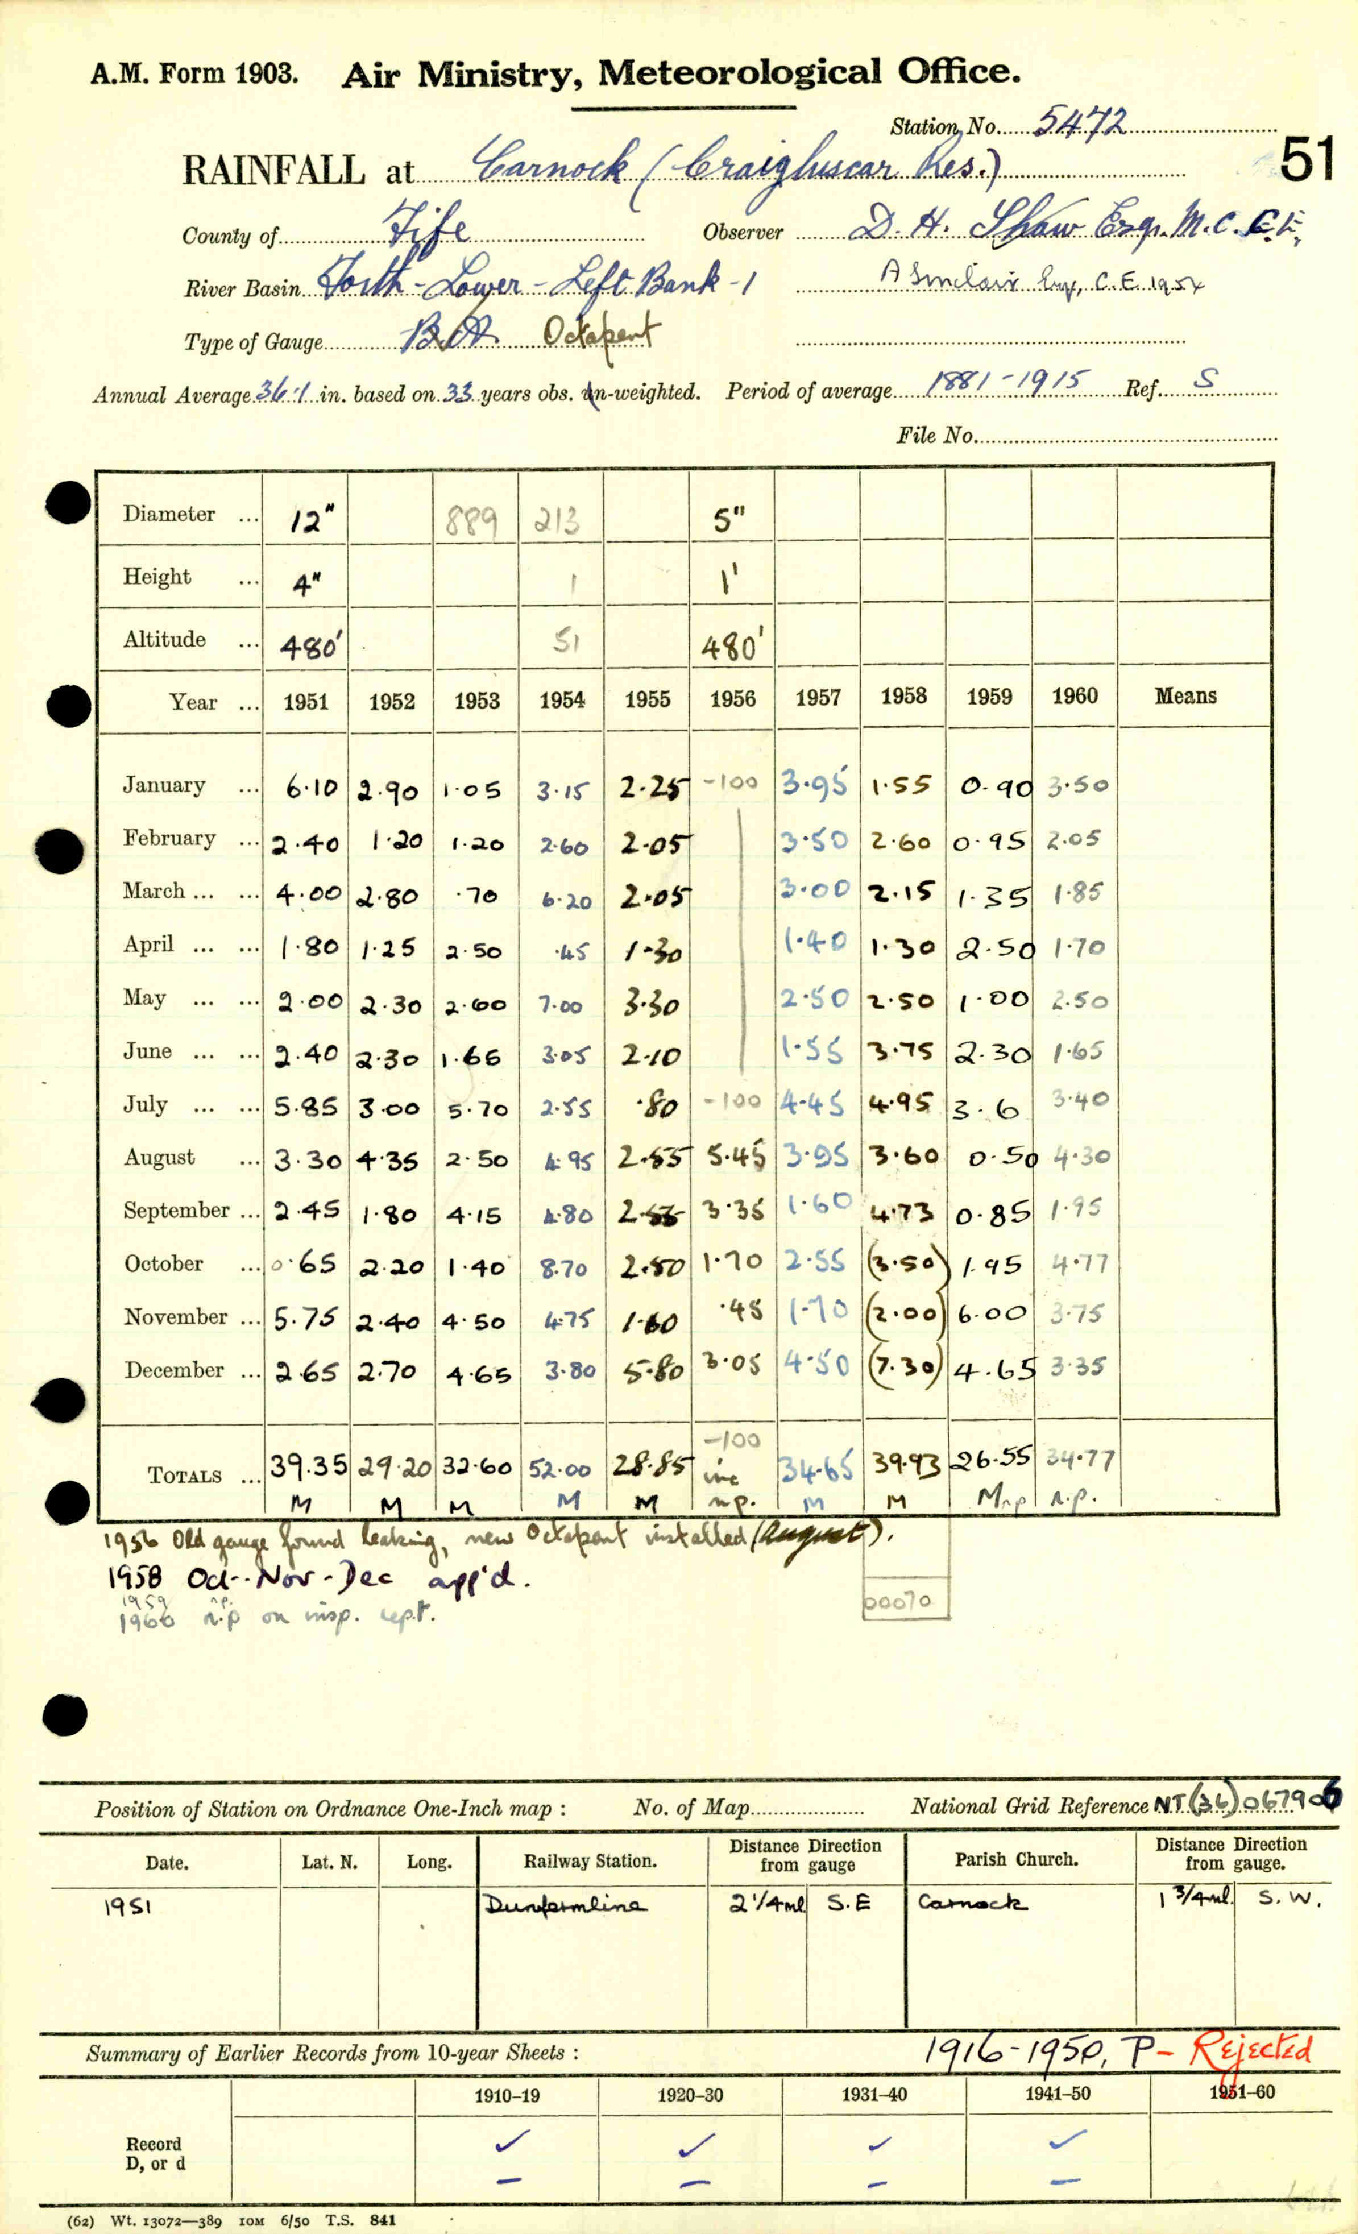 A.M. Form 1903. Air Ministry, Meteorological Office.
Station No. 5472
51
RAINFALL at Carnock (Craigluscar Res.)
County of Fife Observer D. H. Shaw Esq. M.C. C.E.
River Basin Forth - Lower - Left Bank - 1 A Sinclair Esq, C.E. 1954
Type of Gauge Octapent
Annual Average 36.1 in. based on 33 years obs. un-weighted. Period of average 1881-1915 Ref. S
File No.
Diameter ... 12" 889 213 5"
Height ... 4" 1 1'
Altitude ... 480' 51 480'
Year ... 1951 1952 1953 1954 1955 1956 1957 1958 1959 1960 Means
January ... 6.10 2.90 1.05 3.15 2.25 -100 3.95 1.55 0.90 3.50
February ... 2.40 1.20 1.20 2.60 2.05 3.50 2.60 0.95 2.05
March ... ... 4.00 2.80 .70 6.20 2.05 3.00 2.15 1.35 1.85
April ... ... 1.80 1.25 2.50 .45 1.30 1.40 1.30 2.50 1.70
May ... ... 2.00 2.30 2.60 7.00 3.30 2.50 2.50 1.00 2.50
June ... ... 2.40 2.30 1.65 3.05 2.10 1.55 3.75 2.30 1.65
July ... ... 5.85 3.00 5.70 2.55 .80 -100 4.45 4.95 3.6 3.40
August ... 3.30 4.35 2.50 4.95 2.55 5.45 3.95 3.60 0.50 4.30
September ... 2.45 1.80 4.15 4.80 2.55 3.35 1.60 4.73 0.85 1.95
October ... 0.65 2.20 1.40 8.70 2.50 1.70 2.55 (3.50) 1.95 4.77
November ... 5.75 2.40 4.50 4.75 1.60 .45 1.70 (2.00) 6.00 3.75
December ... 2.65 2.70 4.65 3.80 5.80 3.05 4.50 (7.30) 4.65 3.35
-100
TOTALS ... 39.35 29.20 32.60 52.00 28.85 inc 34.65 39.93 26.55 34.77
M M M M M n.p. M M M n.p n.p.
1956 Old gauge found leaking, new Octapent installed (August).
1958 Oct - Nov - Dec app'd.
1959 n.p.
1960 n.p on insp. rept.
00070
Position of Station on Ordnance One-Inch map : No. of Map National Grid Reference NT (36) 067906
Date. Lat. N. Long. Railway Station. Distance Direction from gauge Parish Church. Distance Direction from gauge.
1951 Dunfermline 2 1/4 ml S.E Carnock 1 3/4 ml. S.W.
Summary of Earlier Records from 10-year Sheets : 1916-1950, P - Rejected
1910–19 1920–30 1931–40 1941–50 1951–60
Record ✓ ✓ ✓ ✓
D, or d – – – –
(62) Wt. 13072—389 10M 6/50 T.S. 841